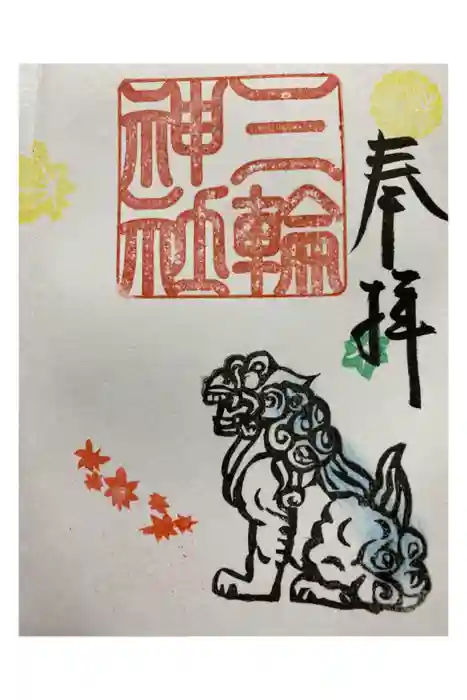 奉拝
三輪
神社